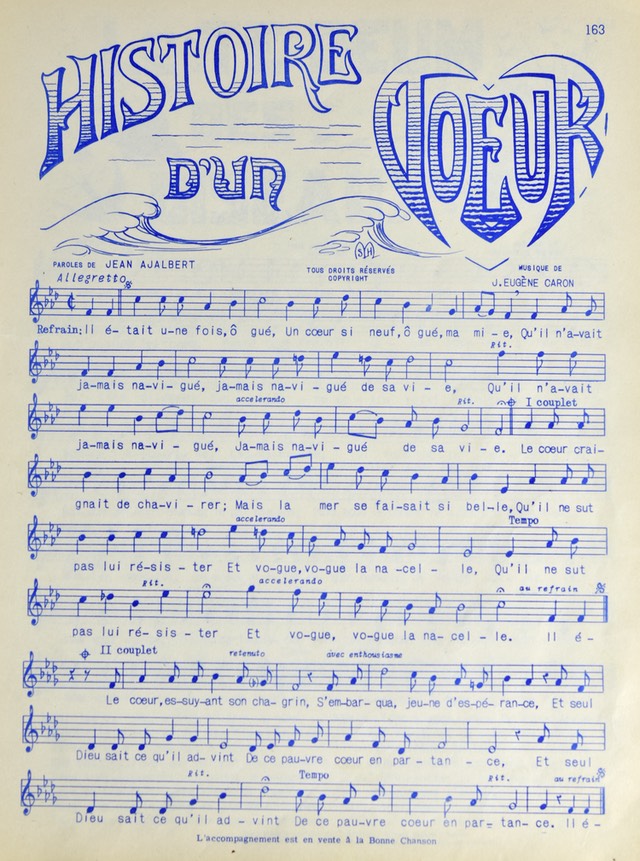 163
HISTOIRE
D'UN
COEUR
PAROLES DE JEAN AJALBERT
TOUS DROITS RÉSERVÉS
COPYRIGHT
MUSIQUE DE
J. EUGÈNE CARON
Allegretto
Refrain: Il é- tait u-ne fois, ô gué, Un cœur si neuf, ô gué, ma mi - e, Qu'il n'a-vait
Rit.
ja-mais na-vi - gué, ja-mais na-vi - gué de sa vi - e, Qu'il n'a-vait
accelerando Rit. I couplet
ja-mais na-vi - gué, Ja-mais na-vi - gué de sa vi - e. Le cœur crai-
gnait de cha-vi - rer; Mais la mer se fai-sait si bel-le, Qu'il ne sut
accelerando Tempo
pas lui ré-sis - ter Et vo-gue, vo-gue la na-cel - le, Qu'il ne sut
Rit. accelerando au refrain
pas lui ré- sis - ter Et vo-gue, vo-gue la na-cel - le. Il é -
II couplet retenuto avec enthousiasme
Le cœur, es-suy-ant son cha-grin, S'em-bar-qua, jeu-ne d'es-pé-ran-ce, Et seul
Dieu sait ce qu'il ad- vint De ce pau-vre cœur en par - tan - ce, Et seul
Rit. Tempo Rit. au refrain
Dieu sait ce qu'il ad - vint De ce pau-vre coeur en par- tan- ce. Il é-
L'accompagnement est en vente à la Bonne Chanson